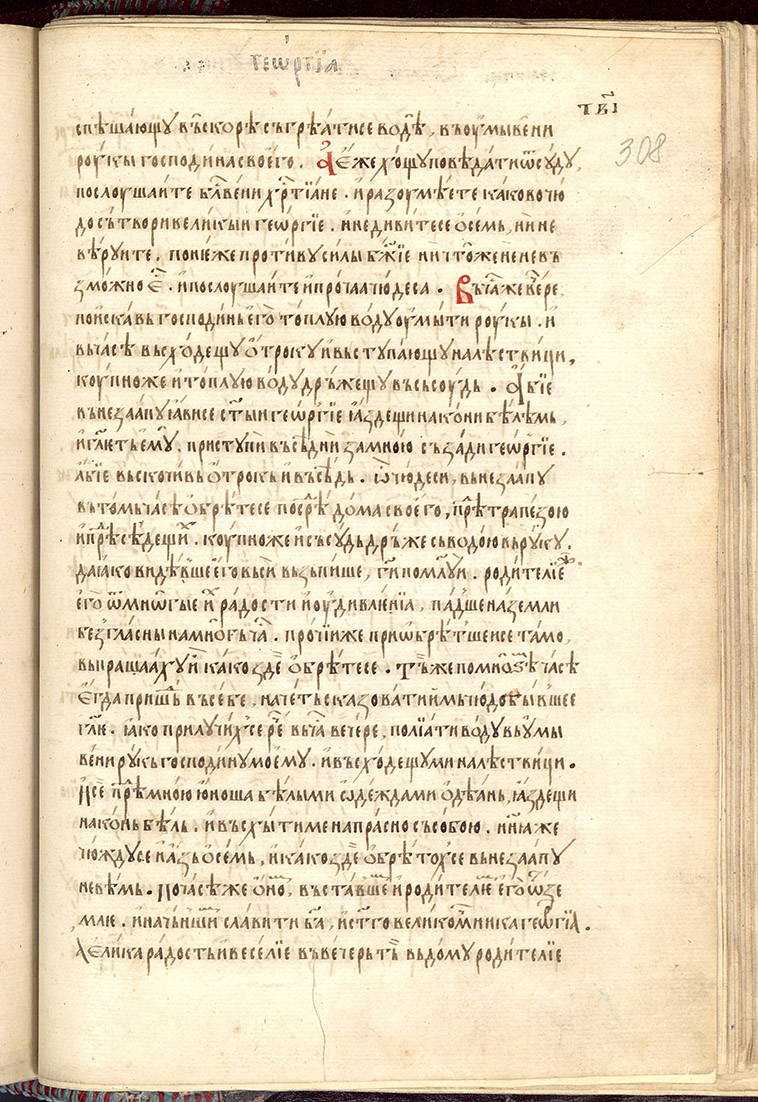 геѡ́ргїꙗ
тв҃і
308
спѣша́ющу въско́рѣ съгрѣ́атисе водѣ̀, въ оумыве́ни
роукы̀ господи́на своѐго. А҆ є҆́же хо́щу повѣ́дати ѿ сѫду,
послоу́шаите бл҃ве́ни хр҃тїа́не. и҆ разоумѣ́ете каково чю
до сътворѝ вели́кыи геѡ́ргїе. и҆ не диви́тесе ѻ҆ се́мь, ни не
вѣ́руите. поне́же проти́ву си́лы б҃жїе ничто́же не не въ
змо́жно є҆с. и҆ послоу́шаите и҆ про́чаа чюдеса. Въ ча́ же ве́ре
поиска̀ вь господи́нь є҆го̀ то́плую во́ду оу҆мы́ти роу́кы. и҆
вь ча́сь въсхо́дещу ѻ҆́троку и҆ въступа́ющу на лѣ́ствици,
коу́пно же и҆ то́плую во́ду дрь́жещу въ съсоу́дь. А҆́бїе
вънеза́апу ꙗ҆ви́се ст҃ыи геѡ́ргїе ꙗ҆́здещи на ко́ни бѣ́лѣмь,
и҆ гл҃етъ є҆му̀. приступѝ въсѣдѝ за мно́ю съза́ди геѡ́ргїе.
а҆́бїе въскочи́въ ѻ҆́трокь и҆ въсѣ́дь. ѽ чю́деси, вьнеза́апу
въ то́мь ча́сѣ ѻ҆брѣ́тесе посрѣ̀ до́ма своѐго, прѣ̀ трапе́зою
и҆ прѣ̀ сѣде́щих. коу́пно же и҆ съсу́дь дрь́же съ водо́ю вь руку.
да ꙗ҆́ко ви́дѣвше є҆го̀ вьсѝ възьпи́ше, гн҃и поми́луи. роди́телїе
є҆го̀ ѿ мнѡ́гые и҆ ра́дости и҆ оу҆дивле́нїа, па́дше на земли
безгла́сны на мно́гь ча́. про́чїи же приѡбрѣ́тшеисе та́мо,
въпраша́аху и҆̀ ка́ко здѐ ѻ҆брѣ́тесе. Тъ́ же по мно́зѣ ча́сѣ
є҆гда̀ прише́ въ се́бе, наче́ть сказовати и҆̀мь подобы́вшее
гл҃ю. ꙗ҆́ко прилучи́хсе ре́ вь ча́ ве́чере, полїа́ти во́ду вь оу҆мы
ве́ни ру́кь господи́ну моѐму. и҆ въсхо́дещу ми на лѣ́ствици.
И҆ сѐ прѣ̀ мно́ю ю҆́ноша бѣ́лыми ѻ҆де́ждами ѻ҆дѣ́ань, ꙗ҆́здещи
на ко́нь бѣ́ль. и҆ въсхы́ти ме напра́сно съ собою. и҆ нн҃ꙗ же
чю́ждусе и҆ а҆́зь ѻ҆ се́мь, и҆ ка́ко здѐ ѻ҆брѣ́тохсе вьнеза́апу
не вѣ́мь. По ча́сѣ же ѻ҆но̀, въста́вше и҆ роди́телїе є҆го̀ ѿ зе
млю. и҆ наче́нши сла́вити ба҃, и҆ ст҃го вели́комч҃ника геѡ́ргїа.
А҆ є҆ли́ка ра́дость и҆ весе́лїе въ ве́черь ть̀ вь до́му роди́телїе